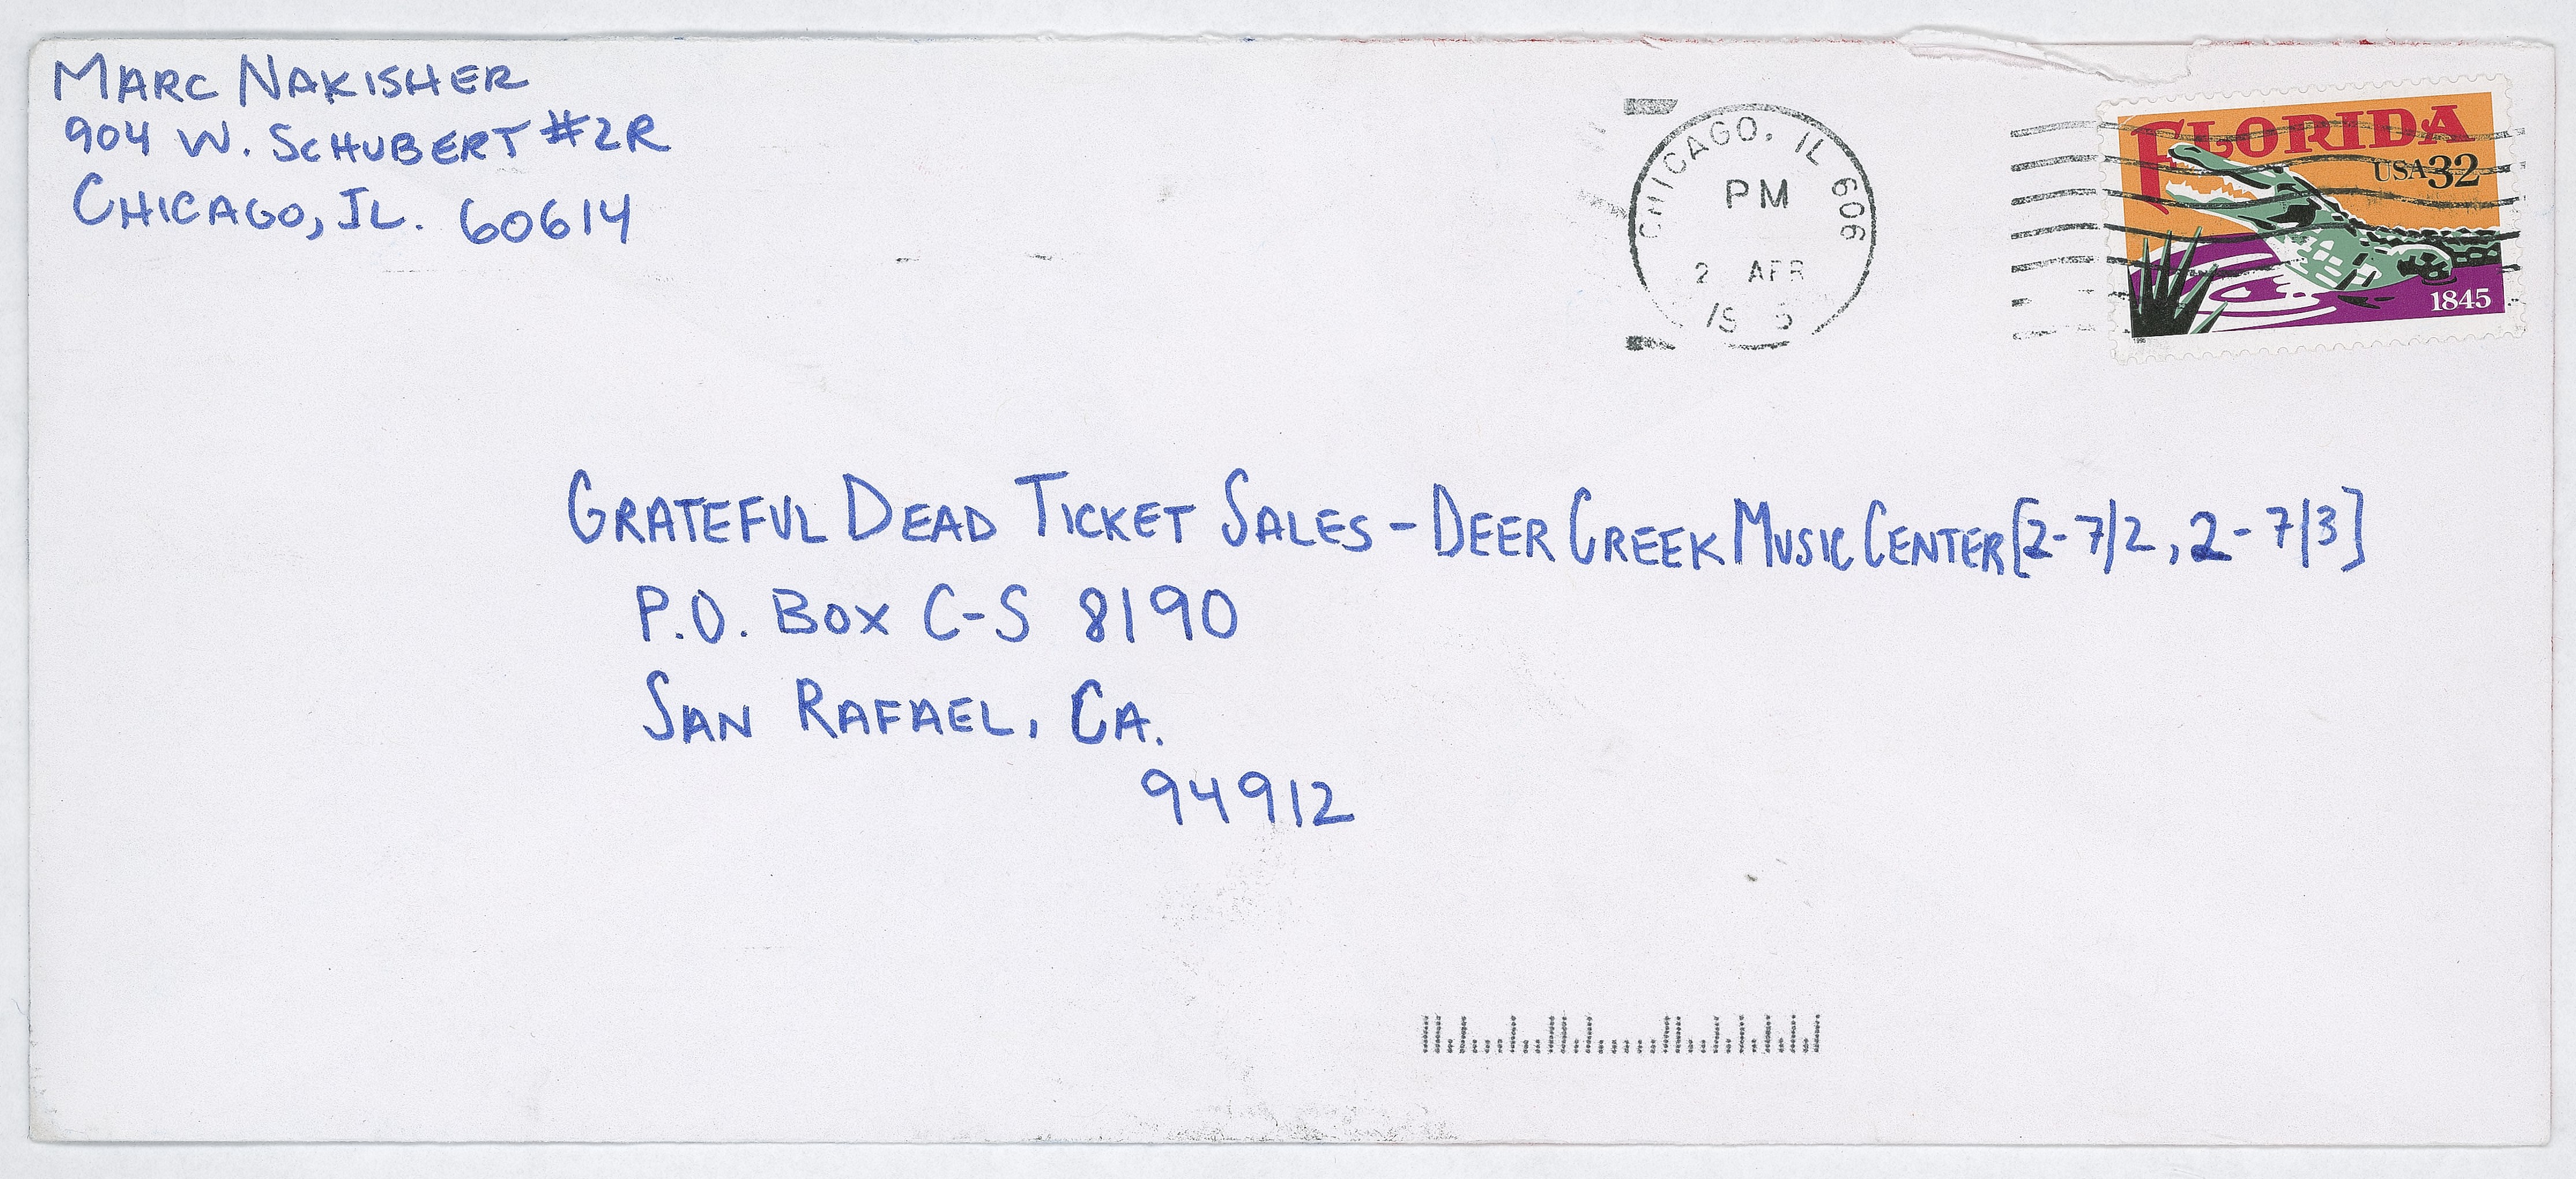 MARC NAKISHER
904 W. SCHUBERT #2R
CHICAGO, IL. 60614
CHICAGO, IL 606
PM
2 APR
FLORIDA
USA 32
1845
GRATEFUL DEAD TICKET SALES - DEER CREEK MUSIC CENTER [2-7/2, 2-7/3]
P.O. BOX C-S 8190
SAN RAFAEL, CA.
94912